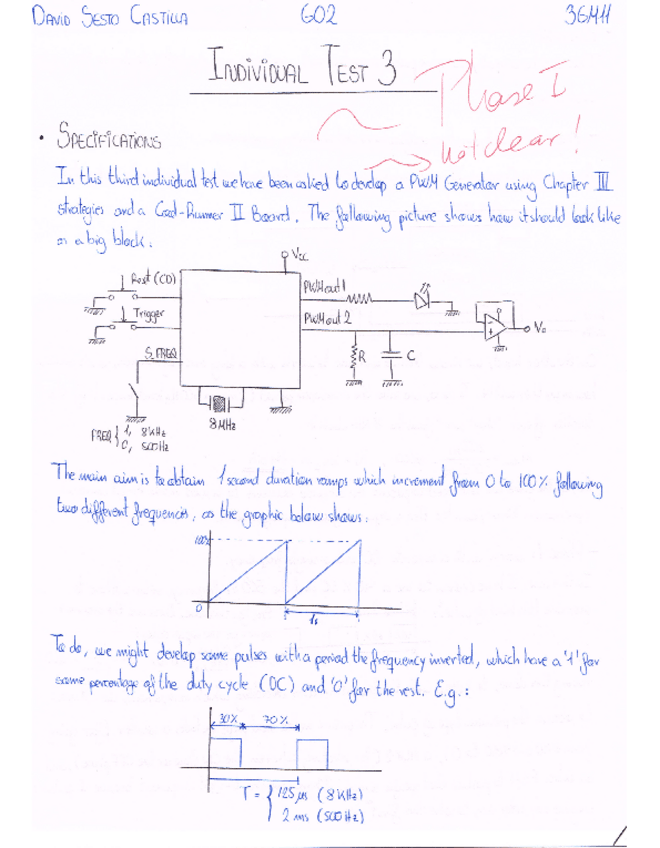 DAVID SESTO CASTILLA G02 36M11
INDIVIDUAL TEST 3
Phase I
not clear!
• SPECIFICATIONS
In this third individual test we have been asked to develop a PWM Generator using Chapter III
strategies and a Cool-Runner II Board. The following picture shows how it should look like
in a big block:
Vcc
Reset (CD)
PWMout1
Trigger
PWMout2
Vo
S_FREQ
R
C
8MHz
FREQ { 1, 8kHz
0, 500Hz
The main aim is to obtain 1 second duration ramps which increment from 0 to 100% following
two different frequencies, as the graphic below shows:
100%
0
1s
To do, we might develop some pulses with a period the frequency inverted, which have a '1' for
some percentage of the duty cycle (DC) and '0' for the rest. E.g.:
30% 70%
T = { 125 µs (8kHz)
2 ms (500Hz)
1